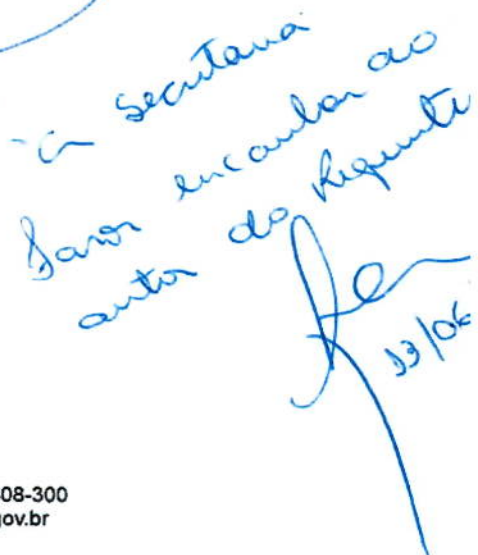 à secretaria
Favor encaminhar ao
autor do Requerimento
13/06
08-300
gov.br